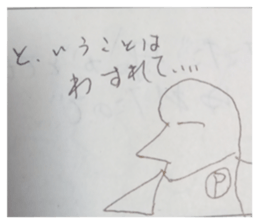 と、いうことは
わすれて、...
P